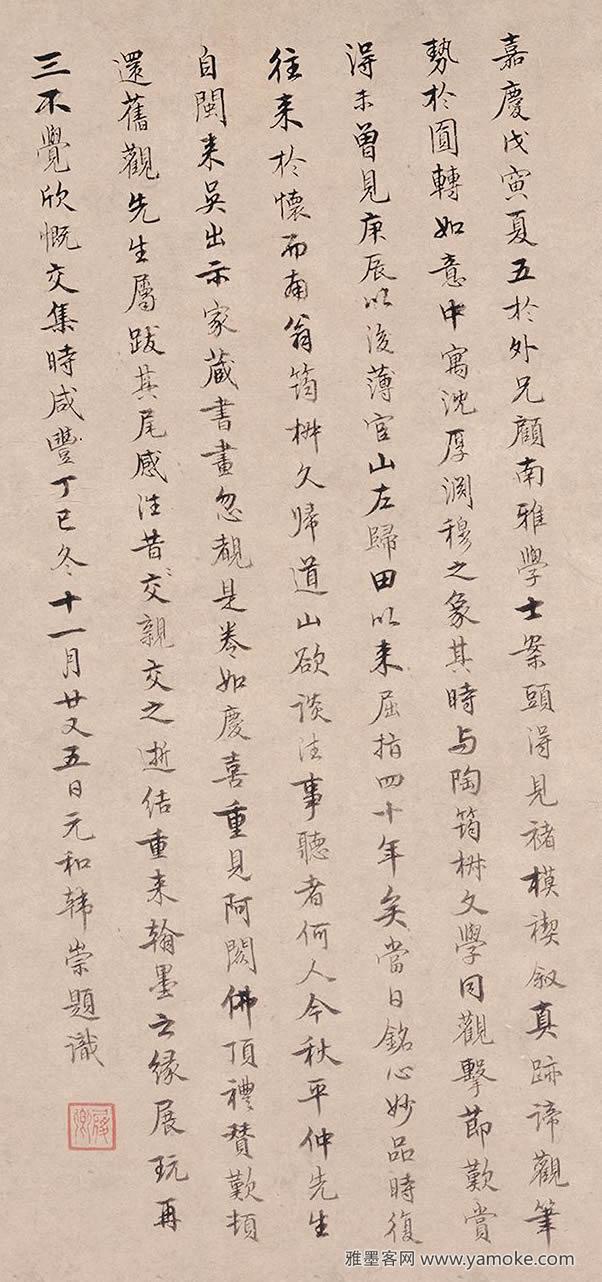 嘉慶戊寅夏五於外兄顧南雅學士案頭得見褚模禊叙真跡諦觀筆
勢於圓轉如意中寓沈厚淵穆之象其時与陶筠椒文學同觀擊節歎賞
得未曾見庚辰以後薄宦山左歸田以来屈指四十年矣當日銘心妙品時復
往来於懷而南翁筠椒久歸道山欲談往事聽者何人今秋平仲先生
自閩来吳出示家蔵書畫忽覩是卷如慶喜重見阿閦佛頂禮賛歎頓
還舊觀先生屬跋其尾感往昔交親之逝結重来翰墨之緣展玩再
三不覺欣慨交集時咸豐丁巳冬十一月廿又五日元和韩崇題識
履卿
雅墨客网 www.yamoke.com